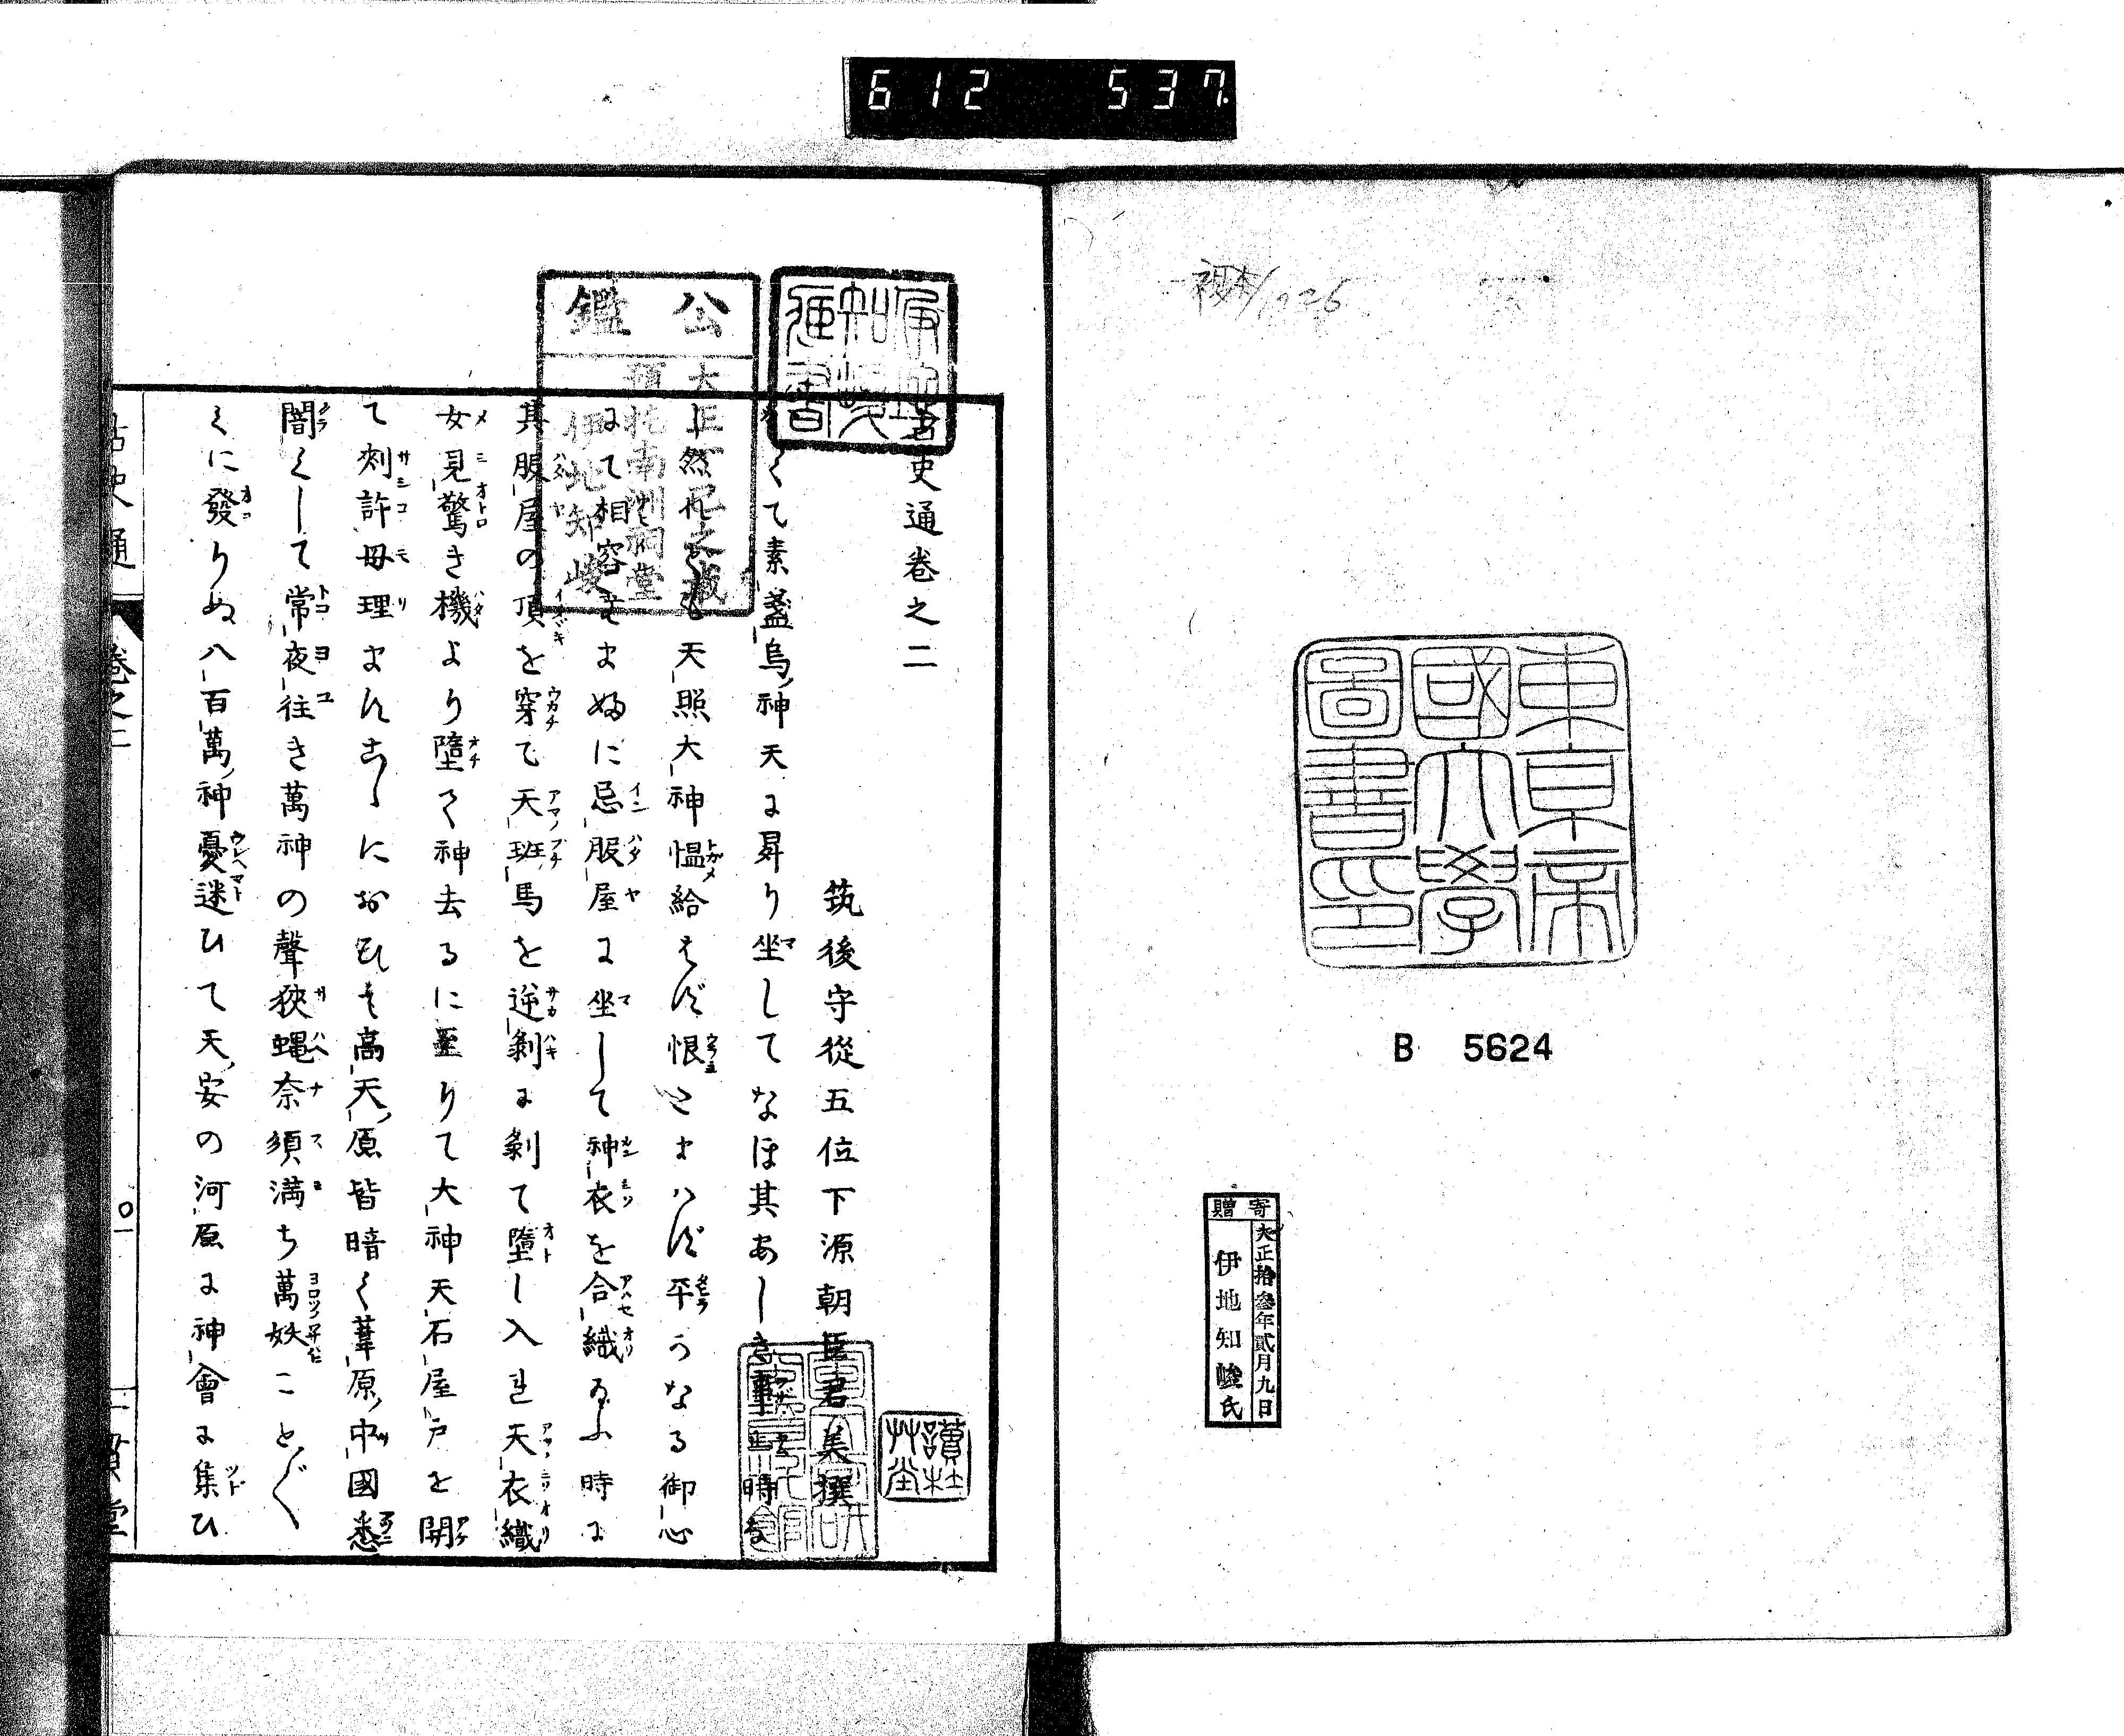 612 537
複本/1926
東京帝
國大學
圖書印
B 5624
寄贈
大正拾參年貳月九日
伊地知峻氏
史通卷之二
筑後守從五位下源朝臣君美撰
くて素盞烏神天に昇り坐してなほ其あしき事止時な
し然れとも天照大神慍給はず恨とまハず平うなる御心
にて相容そまぬに忌服屋に坐して神衣を合織ゐふ時に
其服屋の頂を穿て天班馬を逆剝に剝て墮し入れ天衣織
女見驚き機より墮て神去るに至りて大神天石屋戸を開
て刺許母理まんあゝにおひそ高天原皆暗く葦原中國悉
闇くして常夜往き萬神の聲狹蝿奈須満ち萬妖ことごとく
くに發りぬ八百萬神憂迷ひて天安の河原に神會に集ひ
公鑑
大正 之藏
預托南洲祠堂
伊地知峻
讀杜
艸堂
通
卷之二
〇一